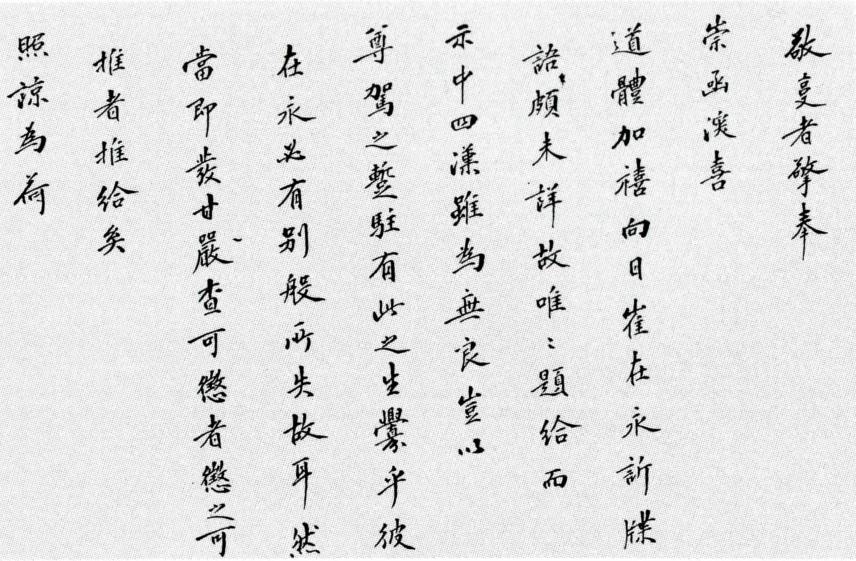 敬复者擎奉
崇函溪喜
道體加禧向日崔在永訴牒
語頗未詳故唯〻題給而
示中四漢雖為無良豈以
尊駕之蹔駐有此之生釁乎彼
在永必有别般所失故耳然
當即發甘嚴查可懲者懲之可
推者推給矣
照諒為荷